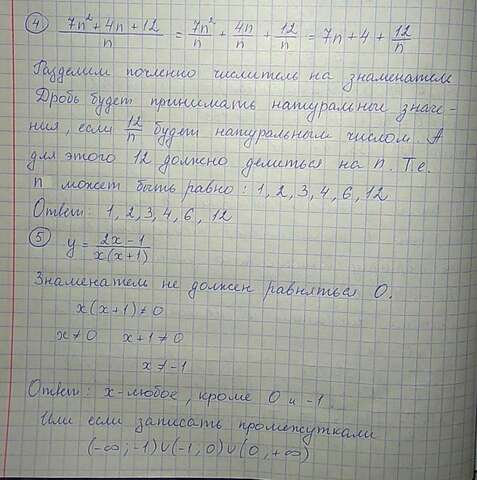 ④ (7n² + 4n + 12)/n = 7n²/n + 4n/n + 12/n = 7n + 4 + 12/n
Разделим почленно числитель на знаменатель
Дробь будет принимать натуральные значе-
ния, если 12/n будет натуральным числом. А
для этого 12 должно делиться на n. Т.е.
n может быть равно: 1, 2, 3, 4, 6, 12
Ответ: 1, 2, 3, 4, 6, 12
⑤ y = (2x - 1)/(x(x+1))
Знаменатель не должен равняться 0.
x(x+1) ≠ 0
x ≠ 0 x+1 ≠ 0
x ≠ -1
Ответ: x-любое, кроме 0 и -1.
Или если записать промежутками
(-∞; -1)∪(-1, 0)∪(0, +∞)